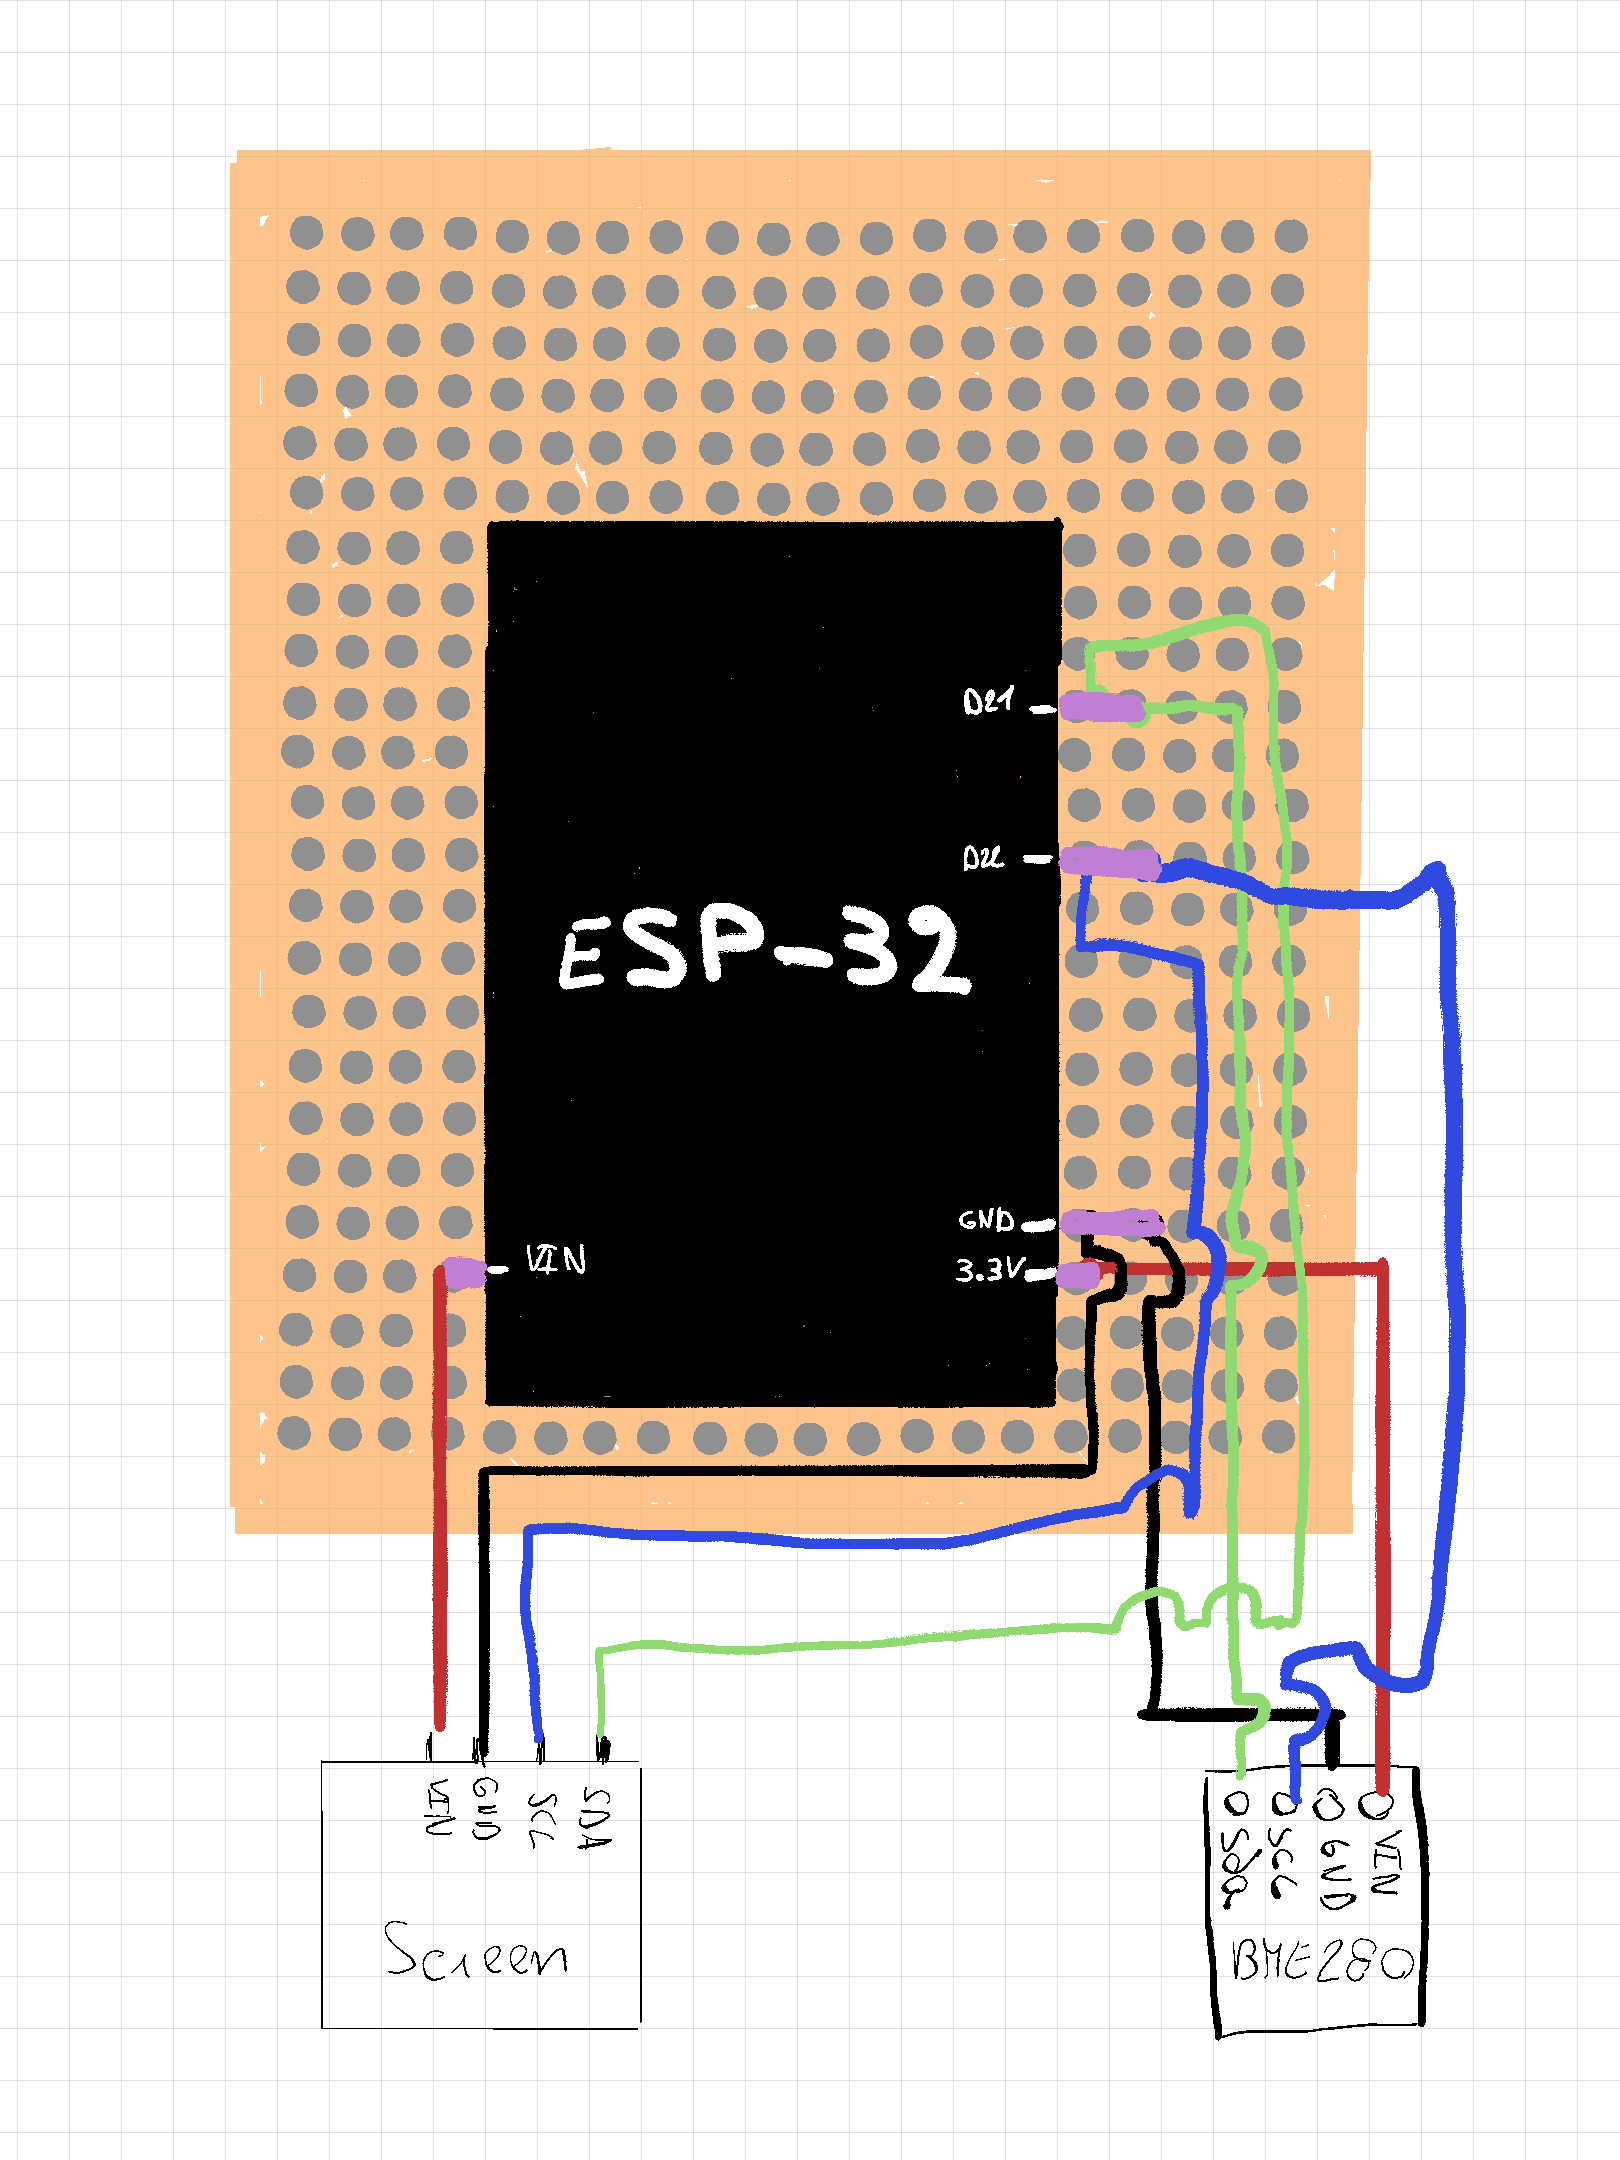 D21
D22
ESP-32
GND
VIN
3.3V
VIN
GND
SCL
SDA
Screen
SDA
SCL
GND
VIN
BME280